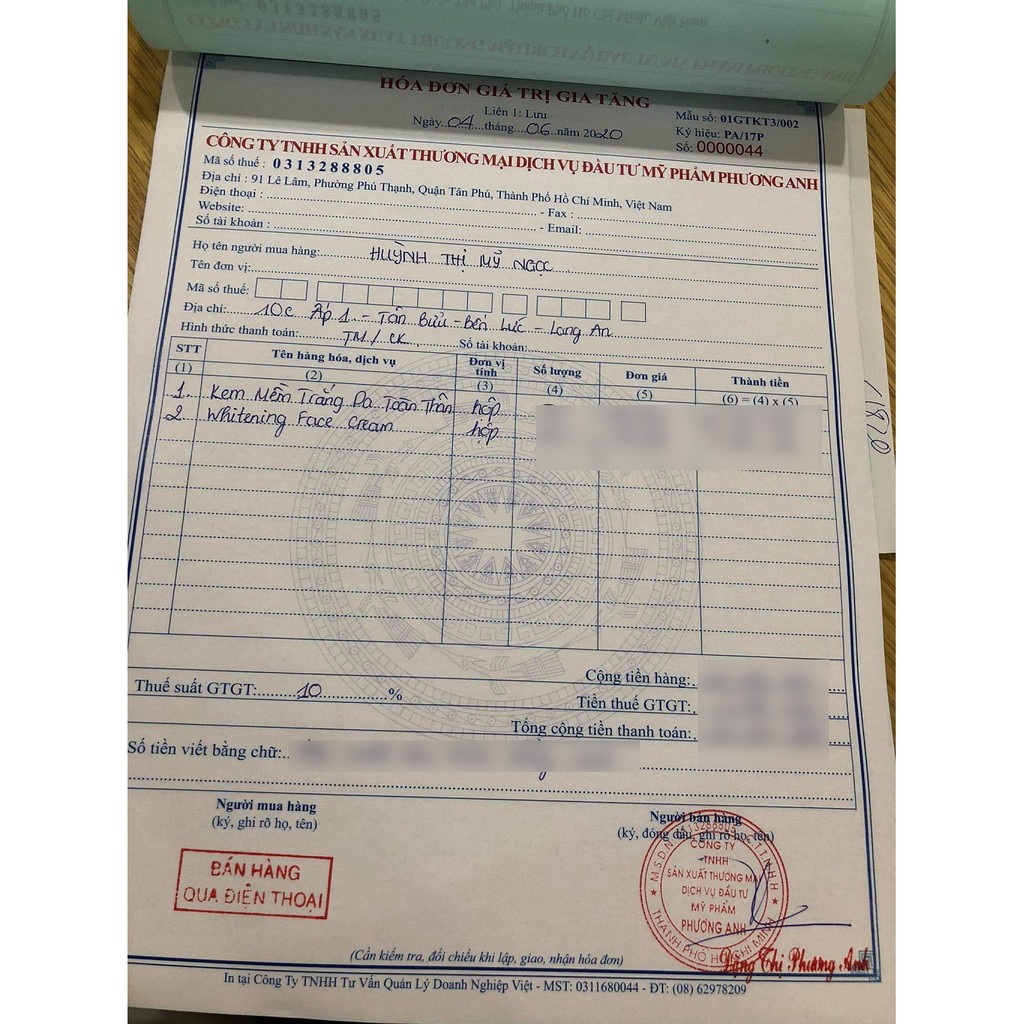 HÓA ĐƠN GIÁ TRỊ GIA TĂNG
Liên 1: Lưu
Ngày 04 tháng 06 năm 2020
Mẫu số: 01GTKT3/002
Ký hiệu: PA/17P
Số: 0000044
CÔNG TY TNHH SẢN XUẤT THƯƠNG MẠI DỊCH VỤ ĐẦU TƯ MỸ PHẨM PHƯƠNG ANH
Mã số thuế : 0313288805
Địa chỉ : 91 Lê Lâm, Phường Phú Thạnh, Quận Tân Phú, Thành Phố Hồ Chí Minh, Việt Nam
Điện thoại : - Fax :
Website: - Email:
Số tài khoản :
Họ tên người mua hàng: HUỲNH THỊ MỸ NGỌC
Tên đơn vị:
Mã số thuế:
Địa chỉ: 10C Ấp 1 - Tân Bửu - Bến Lức - Long An
Hình thức thanh toán: TM / CK Số tài khoản:
STT Tên hàng hóa, dịch vụ Đơn vị tính Số lượng Đơn giá Thành tiền
(1) (2) (3) (4) (5) (6) = (4) x (5)
1. Kem Mềm Trắng Da Toàn Thân hộp
2. Whitening Face Cream hộp
Cộng tiền hàng:
Thuế suất GTGT: 10 % Tiền thuế GTGT:
Tổng cộng tiền thanh toán:
Số tiền viết bằng chữ:
Người mua hàng Người bán hàng
(ký, ghi rõ họ, tên) (ký, đóng dấu, ghi rõ họ, tên)
BÁN HÀNG
QUA ĐIỆN THOẠI
M.S.D.N: 0313288805 - C.T.T.N.H.H
CÔNG TY
TNHH
SẢN XUẤT THƯƠNG MẠI
DỊCH VỤ ĐẦU TƯ
MỸ PHẨM
PHƯƠNG ANH
THÀNH PHỐ HỒ CHÍ MINH
Đặng Thị Phương Anh
(Cần kiểm tra, đối chiếu khi lập, giao, nhận hóa đơn)
In tại Công Ty TNHH Tư Vấn Quản Lý Doanh Nghiệp Việt - MST: 0311680044 - ĐT: (08) 62978209